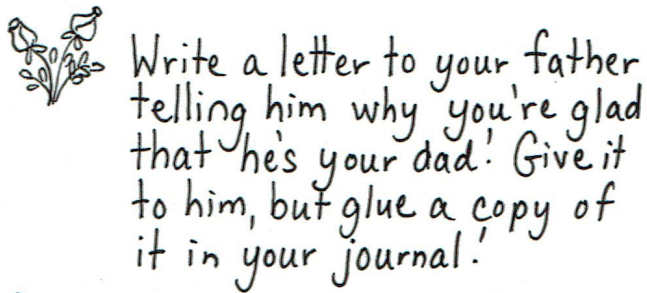 Write a letter to your father
telling him why you're glad
that he's your dad! Give it
to him, but glue a copy of
it in your journal!